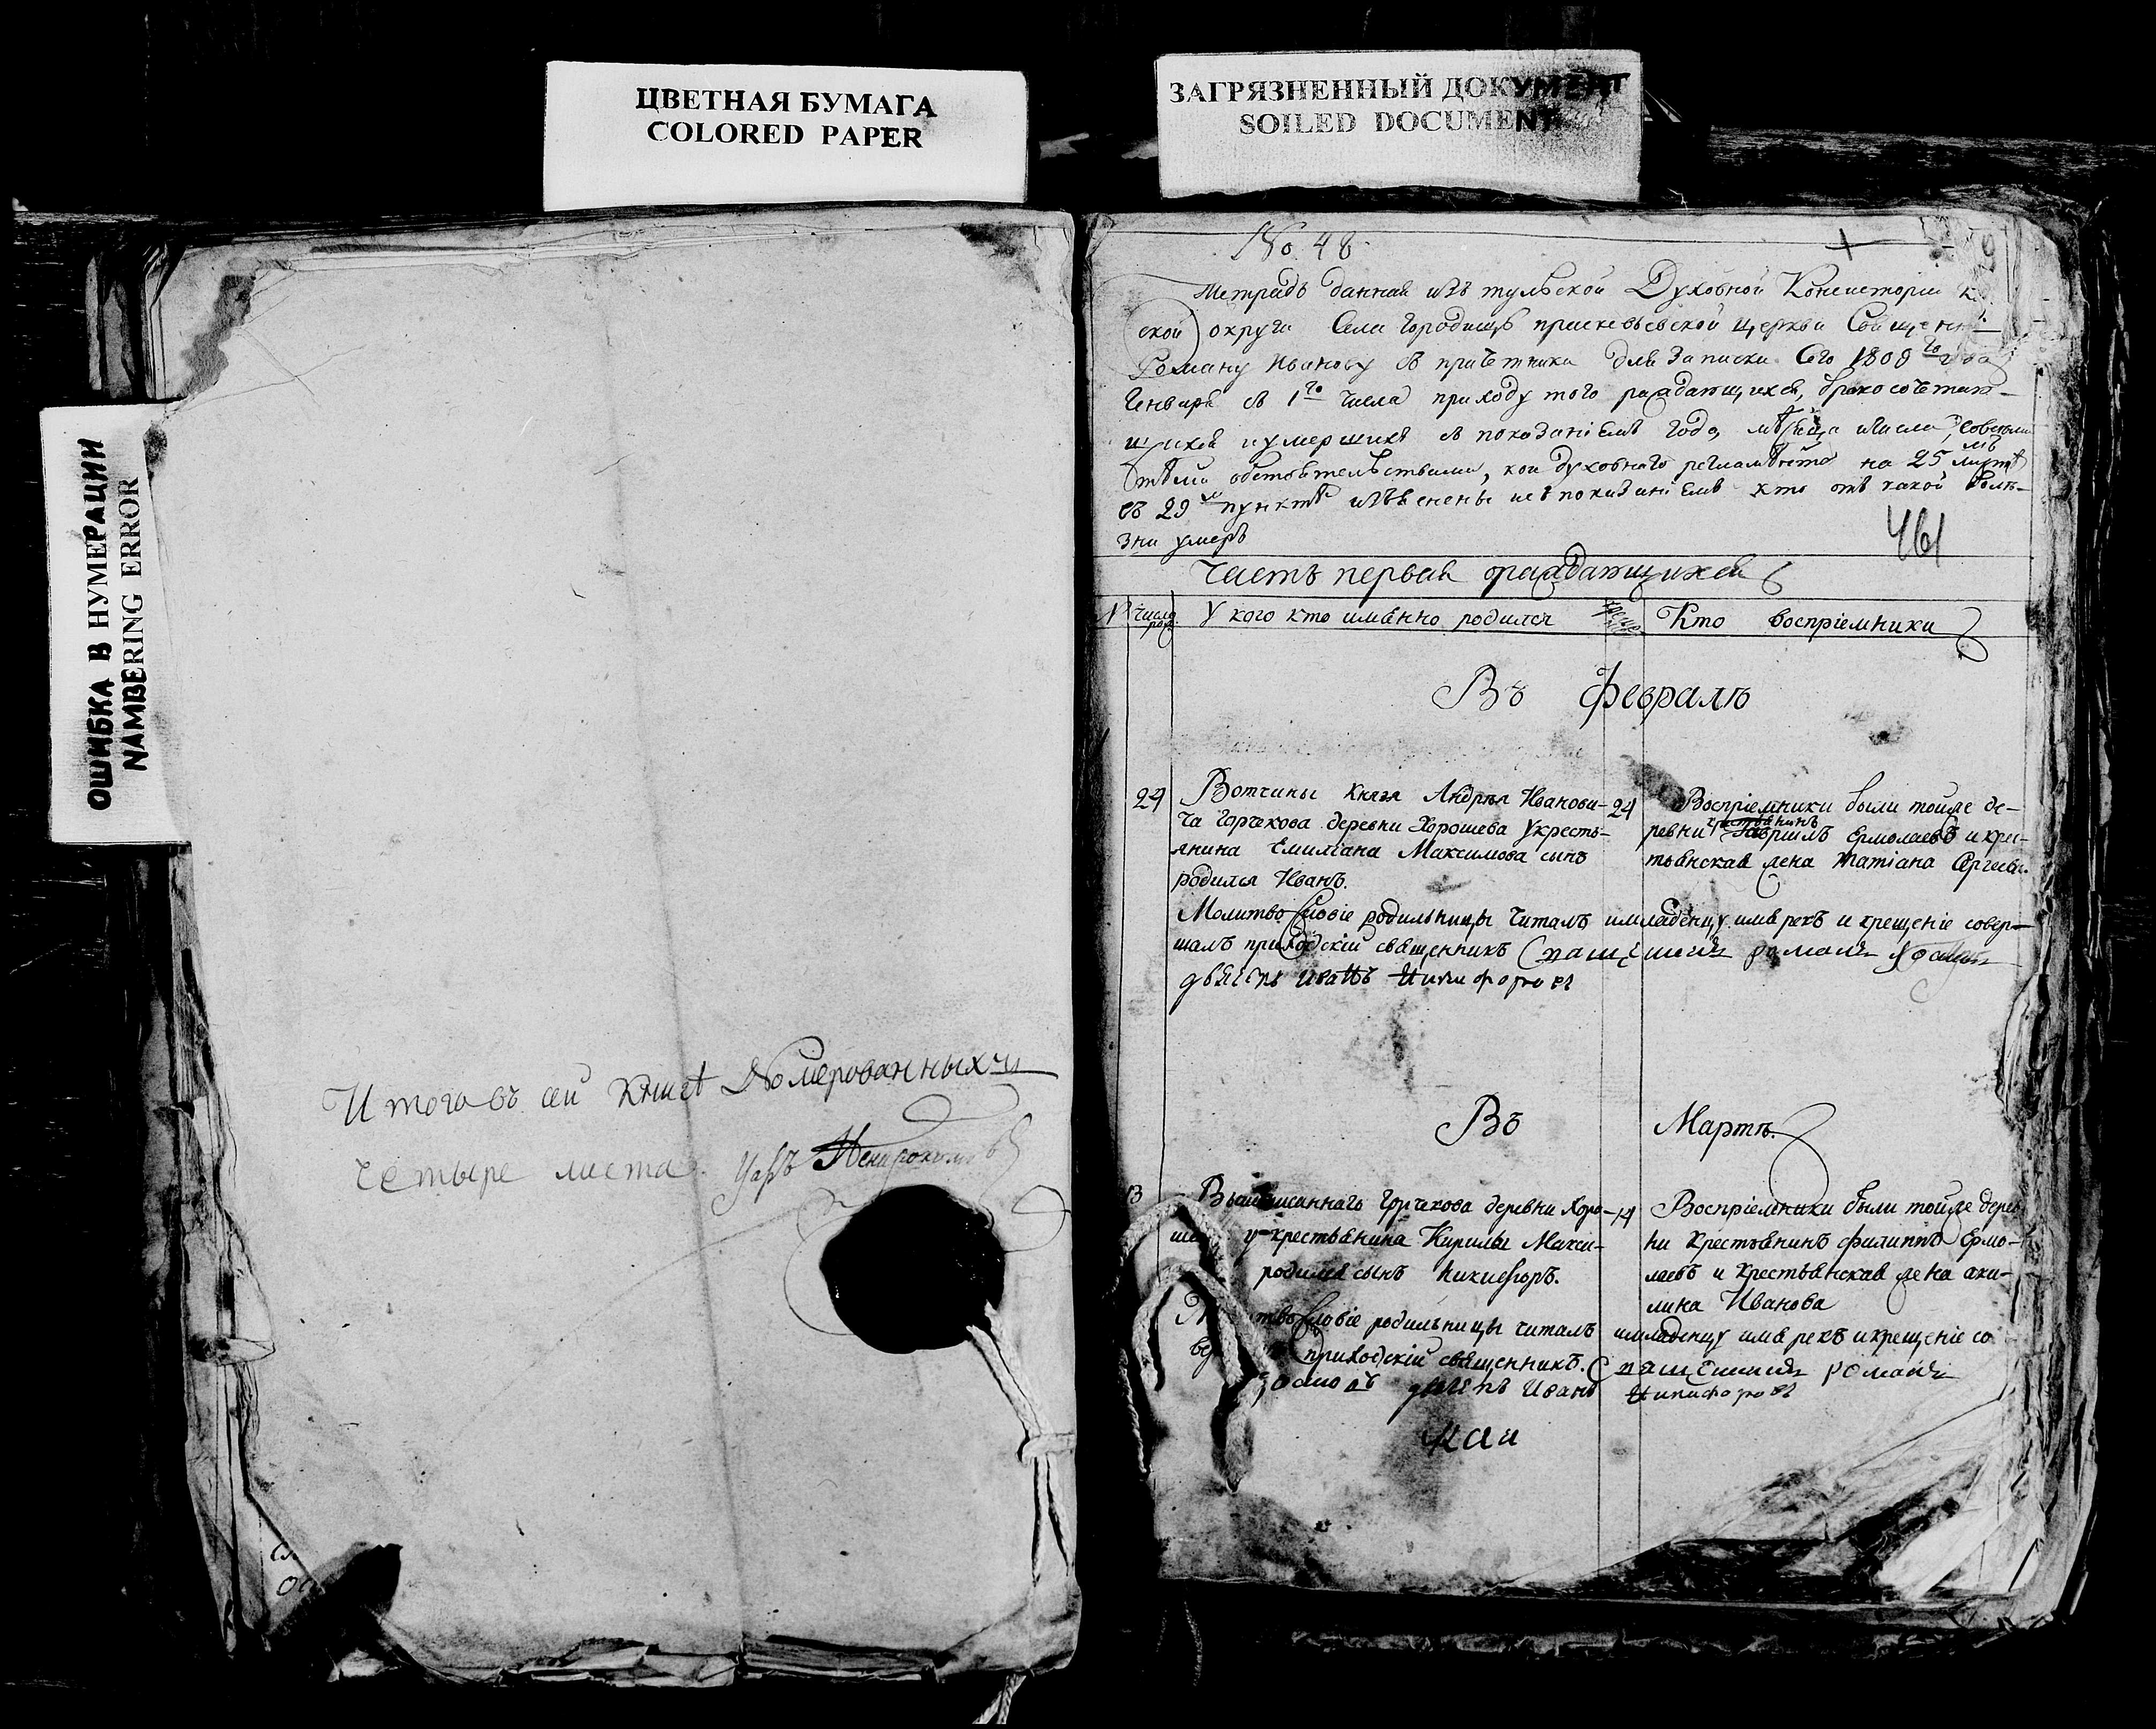 ЦВЕТНАЯ БУМАГА
COLORED PAPER
ЗАГРЯЗНЕННЫЙ ДОКУМЕНТ
SOILED DOCUMENT
ОШИБКА В НУМЕРАЦИИ
NAMBERING ERROR
Итого въ сей книгѣ Номерованныхъ
четыре листа
No 48
Тетрадь данная изъ тульской Духовной Консисторіи
ской округи Села Городищь церкви
Роману Иванову съ причетники для записки Сего 1808 го года
Генваря съ 1 го числа приходу того раждающихся, бракосочетаю-
щихся и умершихъ съ показаніемъ года, мѣсяца и числа, совсеми
тѣми обстоятельствами, кои духовнаго регламѣнта на 25 листѣ
въ 29 пунктѣ изъяснены и съ показаніемъ кто отъ какой болѣ-
зни умеръ
461
Часть первая о раждающихся
N Число рож. У кого кто имянно родился Кто воспріемники
Въ Февралѣ
24 Вотчины Князя Андрѣя Иванови-
ча Горчекова деревни Хорошева у кресть-
янина Емиліана Максимова сынъ
родился Иванъ.
24 Воспріемники были тойже де-
ревни крестьянинъ Гавріилъ Ермолаевъ и крес-
тьянская жена татіана Сергеева.
Молитвословіе родильницы читалъ и младенцу имя рекъ и крещеніе совер-
шалъ приходскій священникъ
дьячекъ иванъ Никифоровъ
Въ Мартѣ.
13 Вышеписаннаго Горчекова деревни Хоро-
у крестьянина Кирилы Макси-
родился сынъ Никифоръ.
14 Воспріемники были тойже дерев
ни Крестьянинъ филиппъ Ермо-
лаевъ и Крестьянская жена аки-
лина Иванова
словіе родильницы читалъ и младенцу имя рекъ и крещеніе со
приходскій священникъ. романъ
Иванъ Никифоровъ